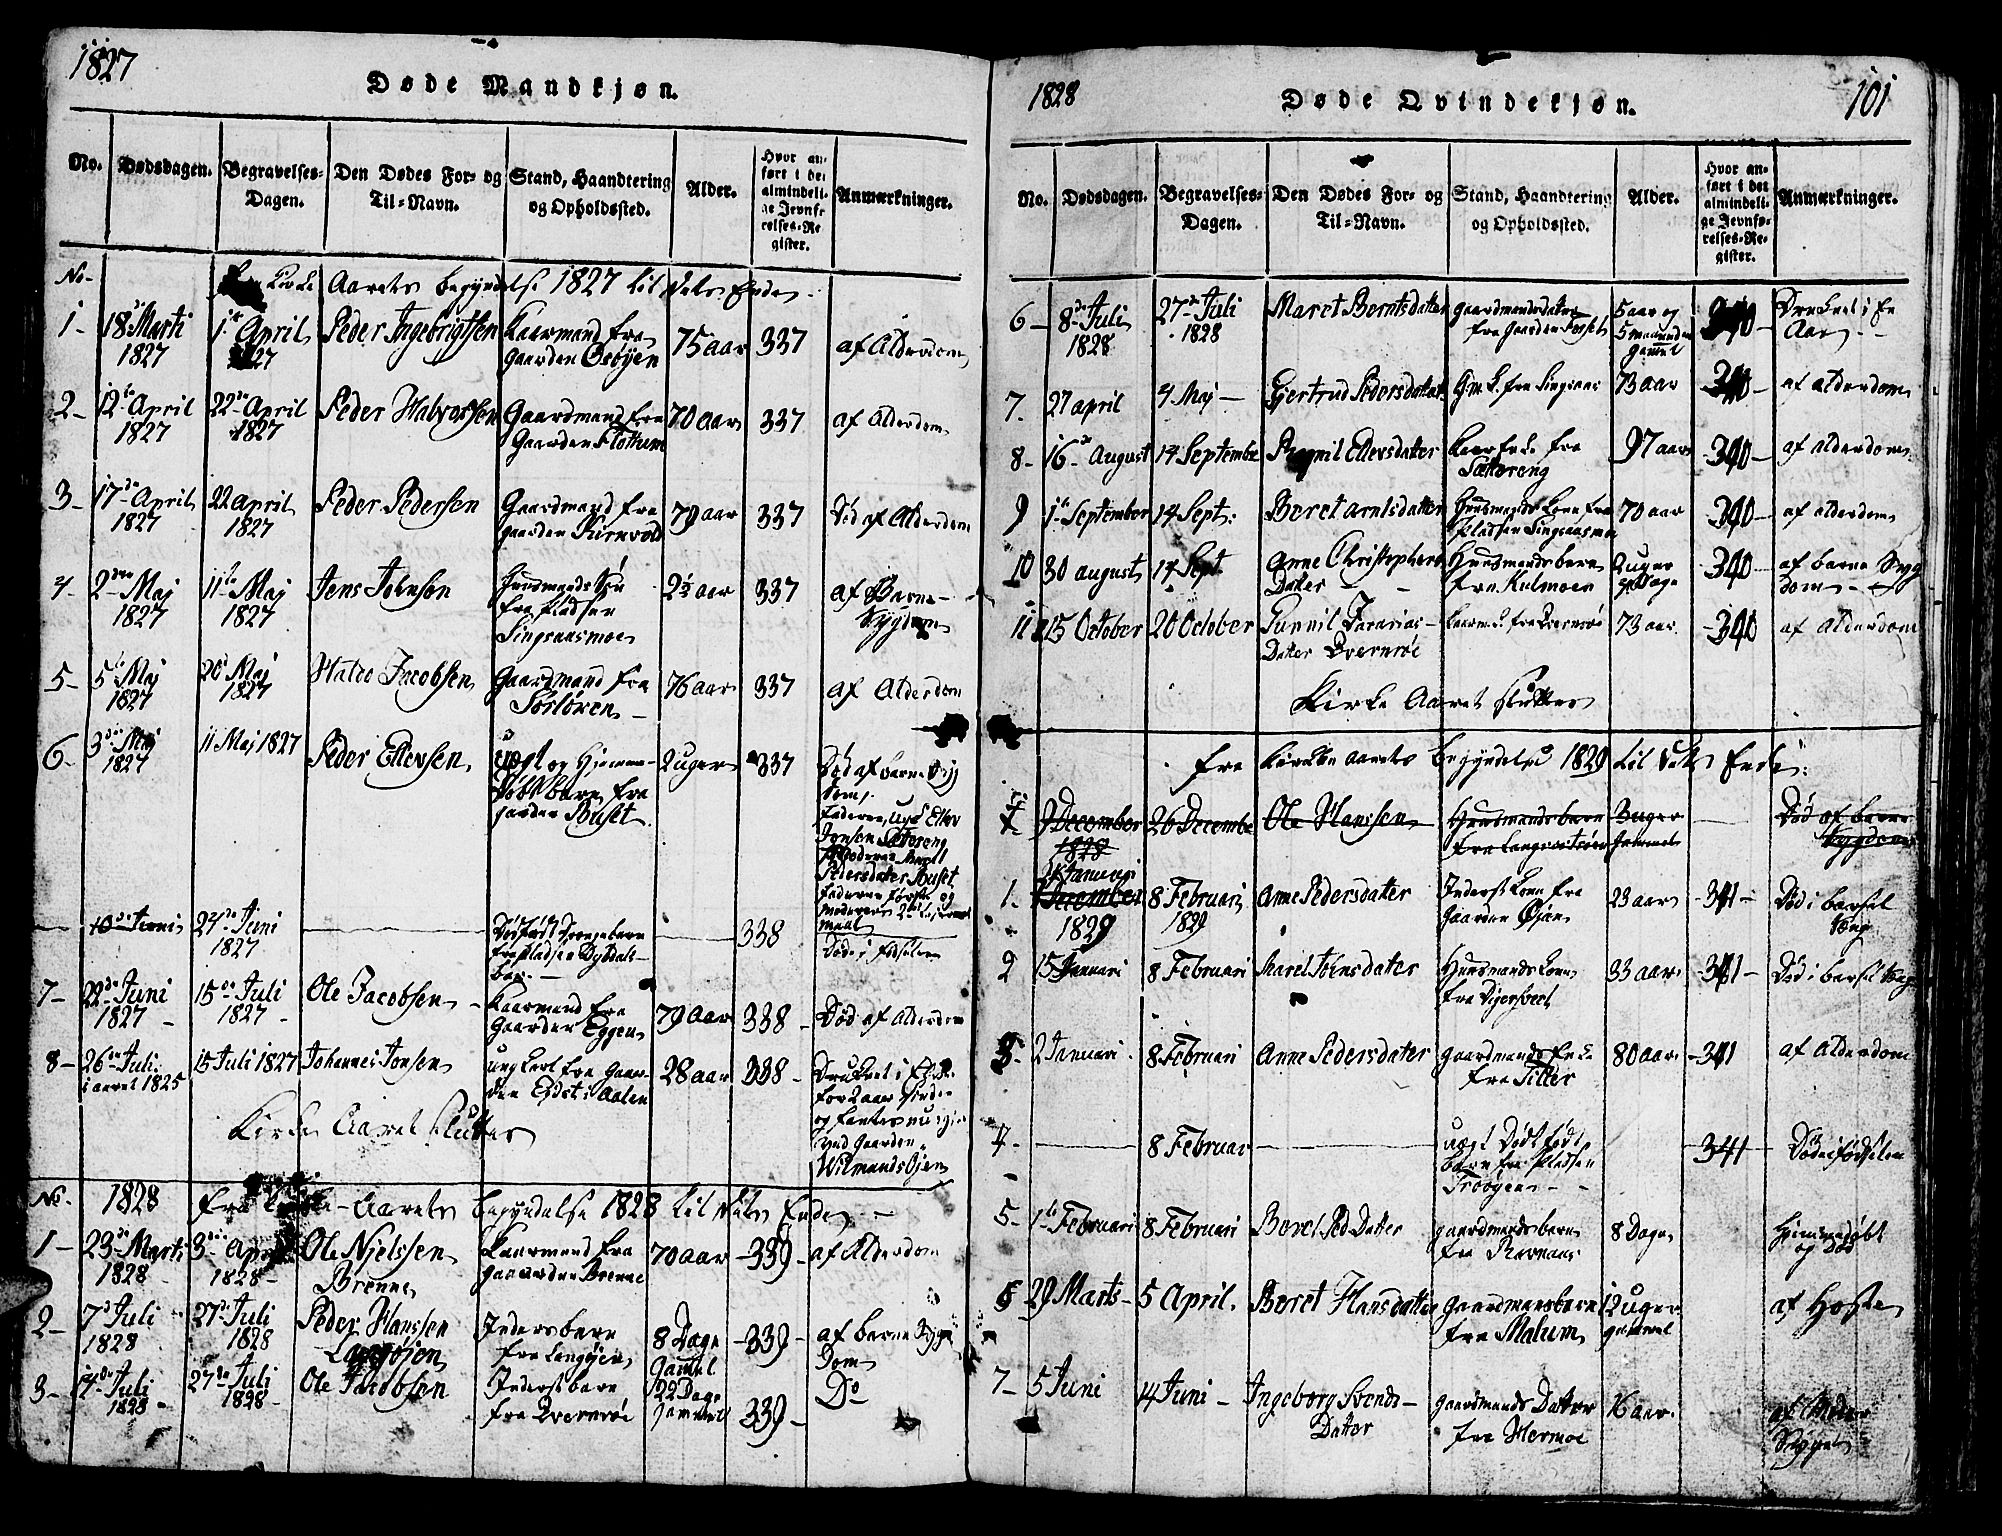 1827
Døde Mandkjøn.
No.
Dødsdagen.
Begravelses-
Dagen.
Den Dødes For- og
Til-Navn.
Stand, Haandtering
og Opholdssted.
Alder.
Hvor an-
ført i det
almindeli-
ge Jevnfø
relses-Re
gister.
Anmærkninger.
No.
Kirke Aarets begyndelse 1827 til dets Ende
1- 18de Marti 1827 1ste April 1827 Peder Ingebrigtsen Kaarmand fra Gaarden Osøyen 75 aar 337 af Alderdom
2- 12te April 1827 22de April 1827 Peder Halvorsen Gaardmand fra Gaarden Flottum 70 aar 337 af Alderdom
3- 17de April 1827 22 april 1827 Peder Pedersen Gaardmand fra gaarden Kirkvold 79 aar 337 Død af Alderdom
4- 2den Maj 1827 11te Maj 1827 Jens Johnson Huusmands Søn fra Pladsen Singsaasmoe 2½ aar 337 af Barne-Sygdom
5- 5te Maj 1827 20de Maj 1827 Haldo Jacobsen Gaardmand fra 76 aar 337 af Alderdom
6- 3die Maj 1827 11 Maj 1827 Peder Ellevsen uægt og Hjemme-Døbt barn fra gaarden Buset 2 uger 337 Død af barne Syg
dom.
Faderen, ungk Ellev
Jonsen Sætereng
Moderen
Pedersdatter Buset
faderens første og
moderens 2det
maal
10de Juni 24de Juni 1827 Dødfødt Drengebarn fra Pladsen 338 Døde i Fødselen
7- 22de Juni 1827 15de Juli 1827 Ole Jacobsen Kaarmand fra Gaarden Eggen 79 Aar 338 Død af Alderdom
8- 26de Juli i aaret 1825 15 Juli 1827 Johannes Jonsen ung karl fra Gaarden Eidet i Aalen 28 aar 338- Druknet i
for 2 aar siden
og fantes nu igien
ved Gaarden
Wilmandsøjen
Kirke Aaret Slutter
No. 1828 Fra Kirke-Aarets begyndelse 1828 til dets Ende
1- 23de Marts 1828 3die April 1828 Ole Njelssen Brenne Kaarmand fra gaarden Brenne 70 aar 339 af Alderdom
2- 7de Juli 1828 27de Juli 1828 Peder Hanssen Langøjen Indersbarn fra Langøjen 8 Dage Gammel 339 af barne Syg Dom
3- 14de Juli 1828 27de Juli 1828 Ole Jacobsen Inderst barn fra Qvernrøe 22 Dage gammel 339 Do
1828
Døde Qvindekjøn.
101
No.
Dødsdagen.
Begravelses-
Dagen.
Den Dødes For- og
Til-Navn.
Stand, Haandtering
og Opholdssted.
Alder.
Hvor an-
ført i det
almindeli-
ge Jevnfø-
relses-Re-
gister.
Anmærkninger.
6- 8de Juli 1828 27de Juli 1828 Maret Berntsdatter gaardmandsdatter fra Gaarden 5 aar og 5 maaneder gammel 340 Druknet i En Aae
7. 27 april 4 Maj Gjertrud Pedersdatter Gm. E. fra Singsaas 73 aar 340 af alderdom
8- 16de August 14 Septembr Ragnil Ellevsdatter Kaar Enke fra Sættereng 97 aar 340 af alderdom
9 1ste September 14 Sept: Beret Arntsdatter Huusmands Kone fra Pladsen Singsaasmoe 70 aar 340 af alderdom
10 30 august 14 Sept. Anne Christophers Datter Huusmandsbarn fra Kulmoen 2 uger 340 af barne Syg dom
11 15 October 20 October Gunnil Zacarias-Datter Qvernrøe fra Qvernrøe 73 aar 340 af alderdom
Kirke Aaret slutter
fra kirke aarets begyndelse 1829 til dets Ende:
1 9 December 1828 26 Decembr Ole Hanssen Huusmandsbarn 3 uger gammel Død af barne Sygdom
1. Januari December 1829 8 Februari 1829 Anne Pedersdatter Inderst Kone fra Gaarden Øjan 23 aar 341 Død i barsel Seng
2 15 Januari 8 Februari Marel Johnsdatter Huusmands Kone fra Digersvedt 33 aar 341 Død i barsel seng
3- 2 Januari 8 Februari Anne Pedersdatter gaardmands Enke fra Titter 80 aar 341 af Alderdom
4- 8 Februar uægt Dødt født barn fra Pladsen Troøgen 341 Død i fødselen
5- 1ste Februari 8 Februari Beret Peds Datter gaardmandsbarn fra Ravnaas 8 Dage Hjemmedøbt og Død
6 29 Marts 5 April. Beret Hansdatter gaardmansbarn fra Malum 12 uger gammel af Hoste
7- 5 Juni 14 Juni Ingeborg Svends-Datter gaardmands Datter fra Hermoe 16 aar. af